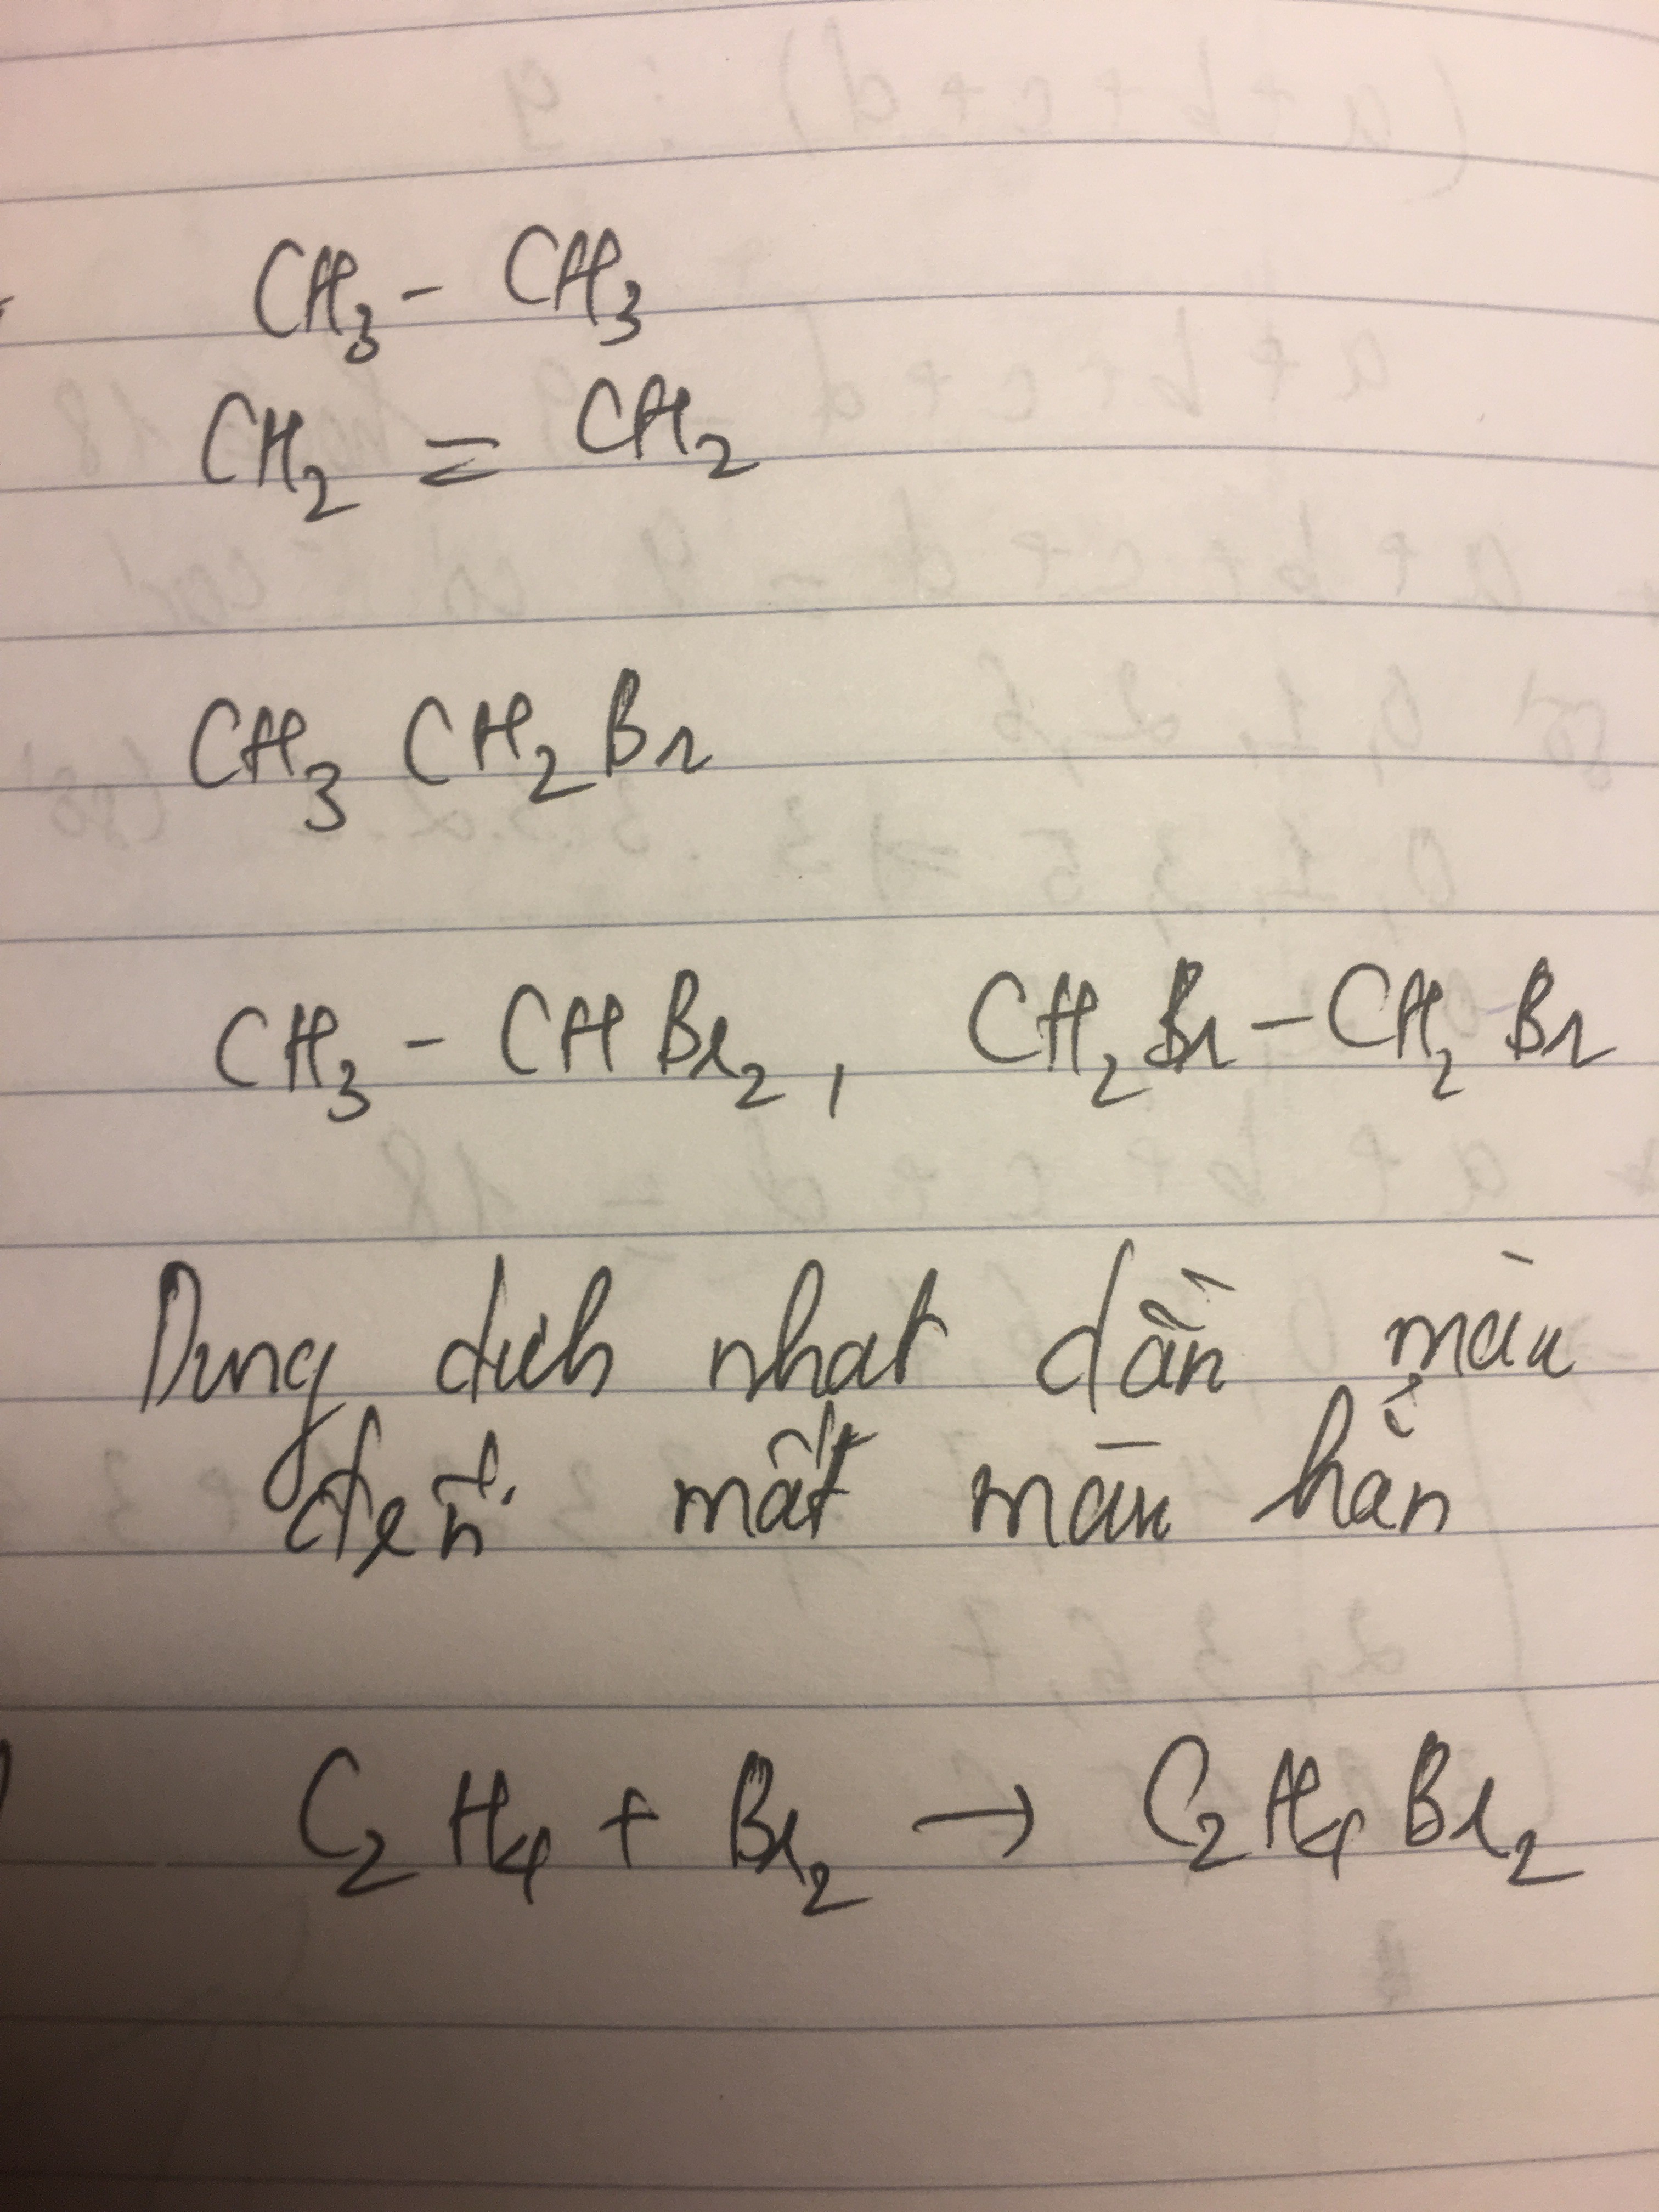 CH₃ - CH₃
CH₂ = CH₂
CH₃ CH₂ Br
CH₃ - CH Br₂, CH₂Br - CH₂Br
Dung dịch nhạt dần màu
đến mất màu hẳn
C₂H₄ + Br₂ → C₂H₄Br₂